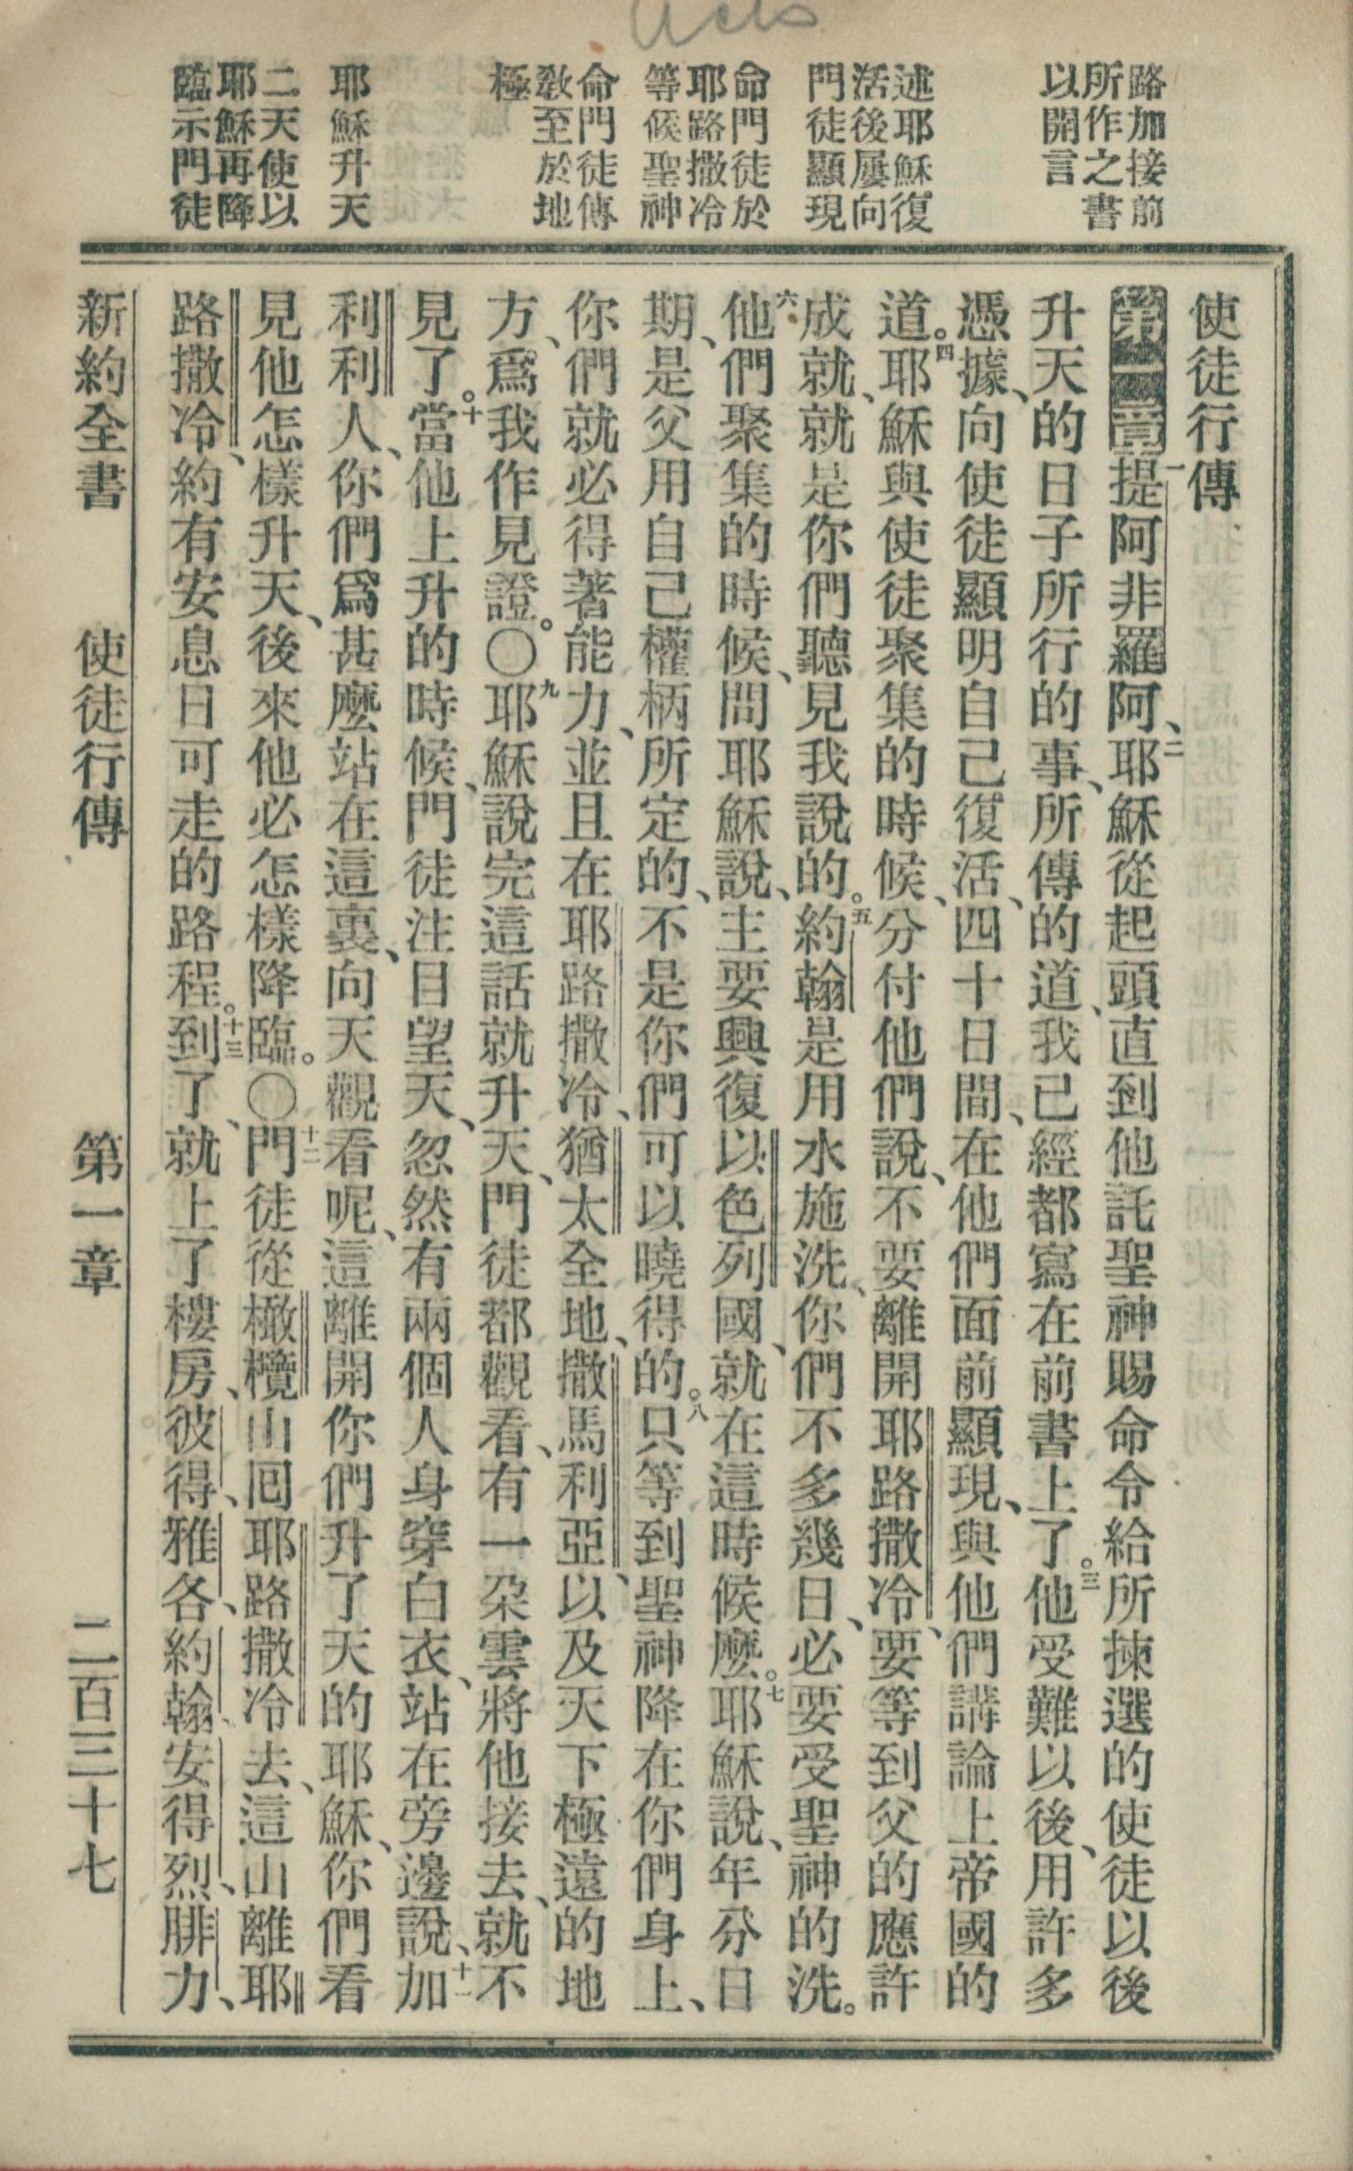 Acts
路加接前
所作之書
以開言
述耶穌復
活後屢向
門徒顯現
命門徒於
耶路撒冷
等候聖神
命門徒傳
敎至於地
極
耶穌升天
二天使以
耶穌再降
臨示門徒
使徒行傳
第一章一提阿非羅阿、二耶穌從起頭直到他託聖神賜命令給所揀選的使徒以後
升天的日子所行的事、所傳的道、我已經都寫在前書上了。三他受難以後、用許多
憑據、向使徒顯明自己復活、四十日間、在他們面前顯現、與他們講論上帝國的
道。四耶穌與使徒聚集的時候、分付他們說、不要離開耶路撒冷、要等到父的應許
成就、就是你們聽見我說的。五約翰是用水施洗、你們不多幾日、必要受聖神的洗。
六他們聚集的時候、問耶穌說、主要興復以色列國、就在這時候麼。七耶穌說、年分日
期、是父用自己權柄所定的、不是你們可以曉得的。八只等到聖神降在你們身上、
你們就必得著能力、並且在耶路撒冷、猶太全地、撒馬利亞、以及天下極遠的地
方、爲我作見證。〇九耶穌說完這話就升天、門徒都觀看、有一朶雲將他接去、就不
見了。十當他上升的時候、門徒注目望天、忽然有兩個人身穿白衣、站在旁邊說、十一加
利利人、你們爲甚麼站在這裏、向天觀看呢、這離開你們升了天的耶穌、你們看
見他怎樣升天、後來他必怎樣降臨。〇十二門徒從橄欖山回耶路撒冷去、這山離耶
路撒冷、約有安息日可走的路程。十三到了、就上了樓房、彼得、雅各、約翰、安得烈、腓力、
新約全書　使徒行傳　第一章　二百三十七